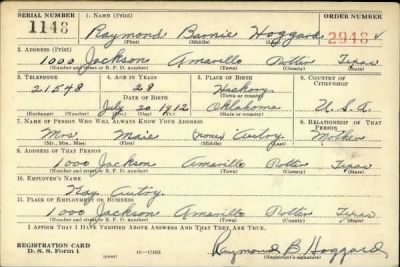 SERIAL NUMBER 1. NAME (Print) ORDER NUMBER
1148 Raymond Hoggard 2948
(First) (Middle) (Last)
2. ADDRESS (Print)
1000 Jackson Amarillo Potter Texas
(Number and street or R. F. D. number) (Town) (County) (State)
3. TELEPHONE 4. AGE IN YEARS 5. PLACE OF BIRTH 6. COUNTRY OF CITIZENSHIP
21548 28 Hickory
DATE OF BIRTH
July 20 1912 Oklahoma U.S.A.
(Exchange) (Number) (Mo.) (Day) (Yr.) (State or country)
7. NAME OF PERSON WHO WILL ALWAYS KNOW YOUR ADDRESS 8. RELATIONSHIP OF THAT PERSON
Mrs Maie (none) Autry Mother
(Mr., Mrs., Miss) (First) (Middle) (Last)
9. ADDRESS OF THAT PERSON
1000 Jackson Amarillo Potter Texas
(Number and street or R. F. D. number) (Town) (County) (State)
10. EMPLOYER'S NAME
Autry
11. PLACE OF EMPLOYMENT OR BUSINESS
1000 Jackson Amarillo Potter Texas
(Number and street or R. F. D. number) (Town) (County) (State)
I AFFIRM THAT I HAVE VERIFIED ABOVE ANSWERS AND THAT THEY ARE TRUE.
REGISTRATION CARD
D. S. S. Form 1 (over) Raymond B Hoggard
(Registrant's signature)